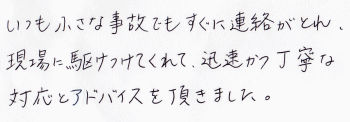 いつも小さな事故でもすぐに連絡がとれ、
現場に駆けつけてくれて、迅速かつ丁寧な
対応とアドバイスを頂きました。